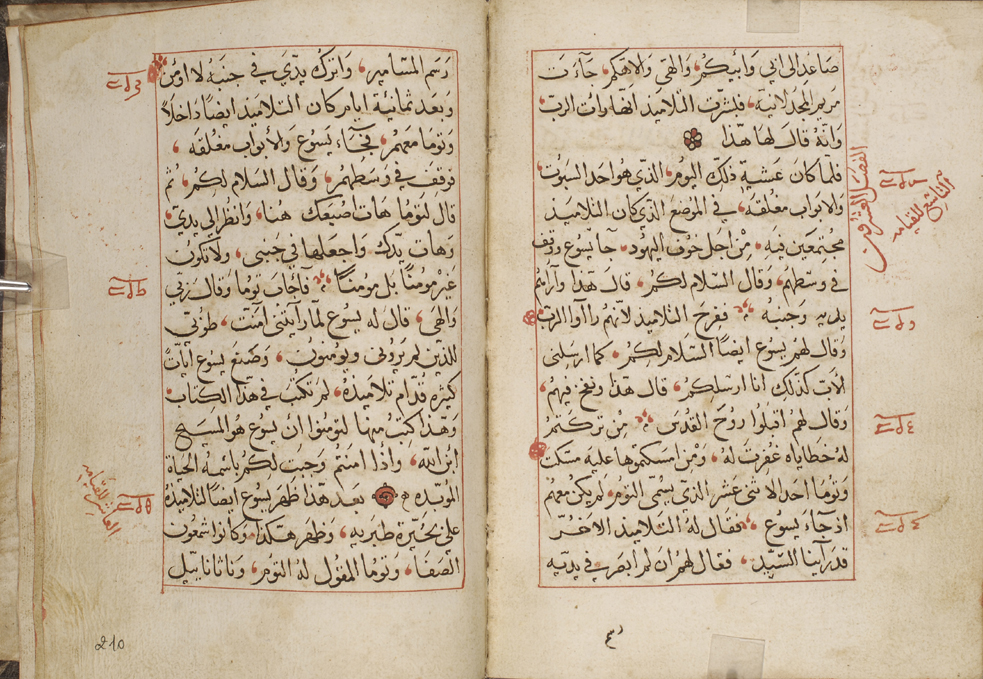 صاعد الى ابي وابيكم، والهي والاهكم، جآءت
مريم المجدلانية، فبشرت التلاميذ انها رات الرب
وانه قال لها هذا
فلما كان عشية ذلك اليوم، الذي هو احد السبوت
والابواب مغلقة، في الموضع الذي كان التلاميذ
مجتمعين فيه، من اجل خوف اليهود، جا يسوع ووقف
في وسطهم، وقال السلام لكم، قال هذا وآراهم
يديه وجنبه ففرح التلاميذ لانهم رآوا الرب
وقال لهم يسوع ايضا السلام لكم، كما ارسلني
الاب كذلك انا ارسلكم، قال هذا ونفخ فيهم،
وقال لهم اقبلوا روح القدس من تركتم
له خطاياه غفرت له، ومن امسكتموها عليه مسكت
وتوما احد الاثني عشر الذي يسمى التوم، لم يكن معهم
اذ جآء يسوع، فقال له التلاميذ الاخر
قد رآينا السيد، فقال لهم ان لم ابصر في يديه
الفصل العشرون
التاسع للقيامه
رسم
رسم المسامير، واترك يدي في جنبه لا اومن
وبعد ثمانية ايام كان التلاميذ ايضا داخلا
وتوما معهم، فجآء يسوع والابواب مغلقه،
فوقف في وسطهم، وقال السلام لكم، ثم
قال لتوما هات اصبعك هنا، وانظر الى يدي،
وهات يدك واجعلها في جنبي، ولا تكون
غير مومنا بل مومنا فآجاب توما وقال ربي
والهي، قال له يسوع لما رآيتني امنت، طوبي
للذين لم يروني ويومنون، وصنع يسوع ايات
كثيره قدام تلاميذه، لم تكتب في هذا الكتاب،
وهذا كتبت منها لتومنوا ان يسوع هو المسيح
ابن الله، واذا امنتم وجبت لكم باسمه الحياة
الموبده بعد هذا ظهر يسوع ايضا لتلاميذه
على بحيرة طبريه، وظهر هكذا، وكانوا شمعون
الصفا، وتوما المقول له التوم، وناثانابيل
العاشر للقيامه
210